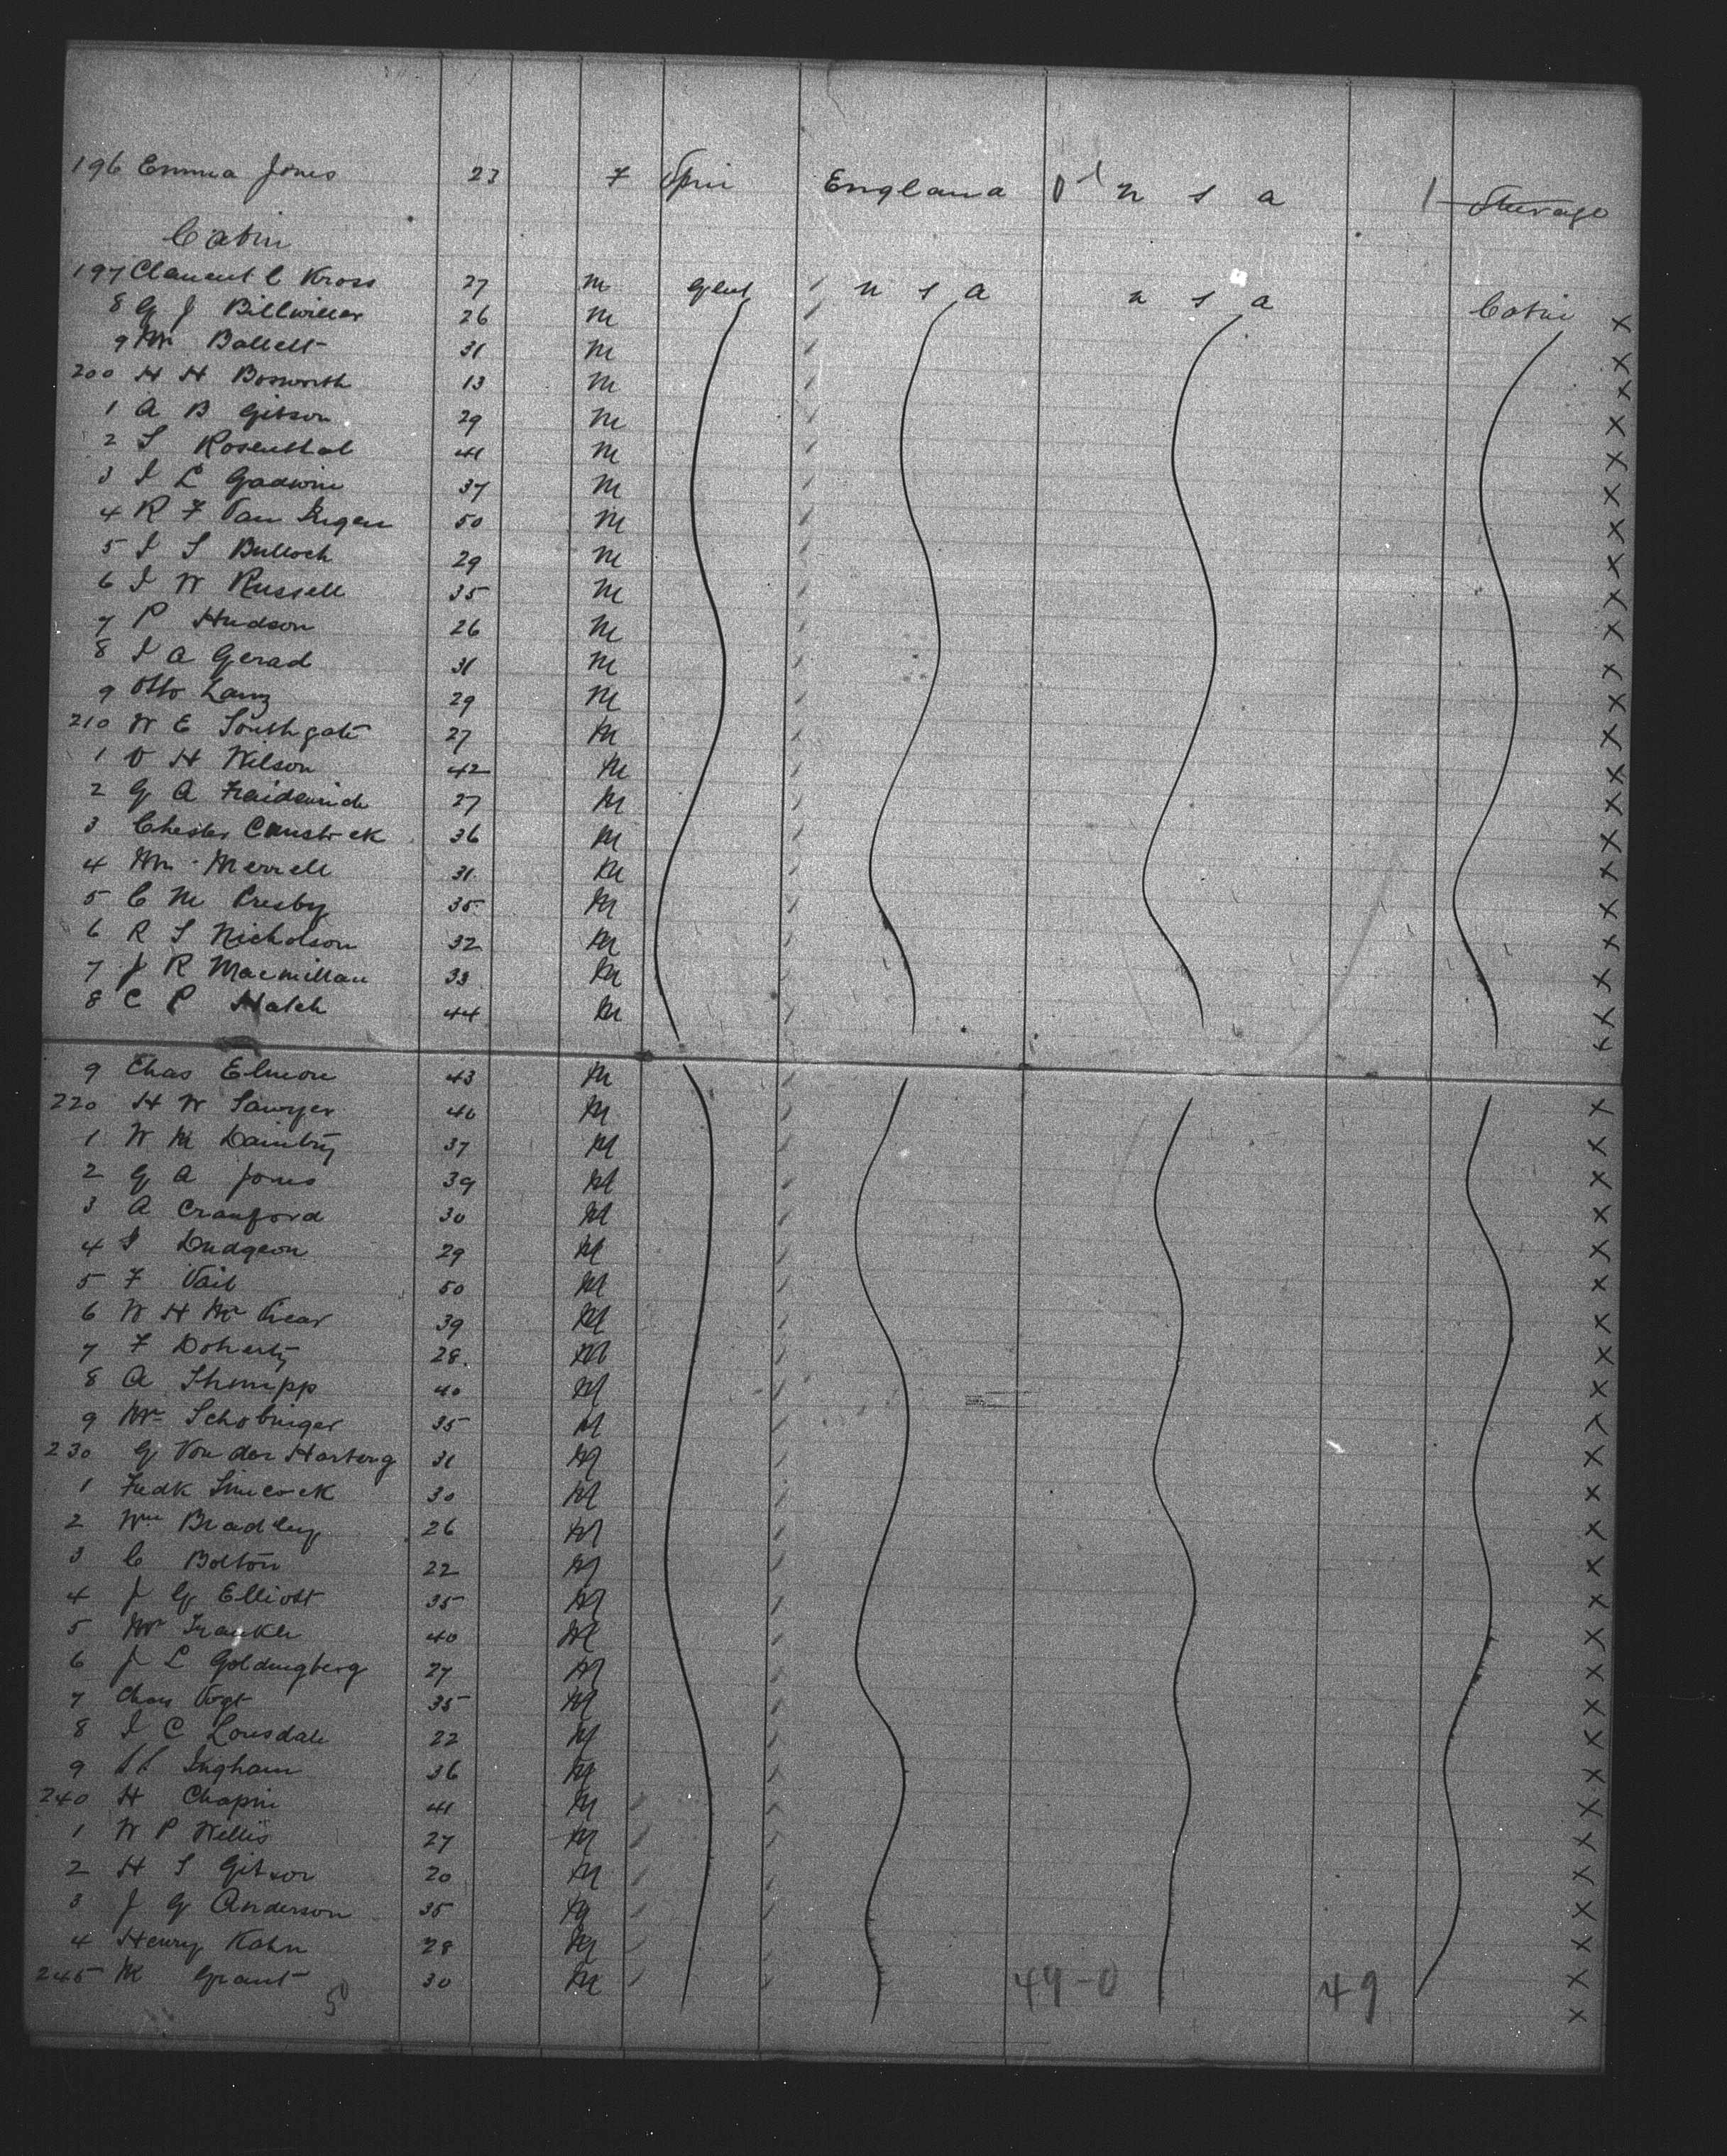 196 Emma Jones 23 F Spin England 0 1 U S A 1 Steerage
Cabin
197 Clement C Kross 27 M Gent U S A U S A Cabin X
8 G J Billwiller 26 M X
9 Mr Ballett 31 M X
200 H H Bosworth 13 M X
1 A B Gibson 29 M X
2 S Rosenthal 41 M X
3 I L Gadwin 37 M X
4 R F Van Ingen 50 M X
5 I S Bulloch 29 M X
6 I W Russell 35 M X
7 P Hudson 26 M X
8 I A Gerad 31 M X
9 Otto Lanz 29 M X
210 W E Southgate 27 M X
1 V H Wilson 42 M X
2 G A 27 M X
3 Chester 36 M X
4 Wm Merrell 31 M X
5 C M Presby 35 M X
6 R S Nicholson 32 M X
7 J R Macmillan 33 M X
8 C P Hatch 44 M X
9 Chas Elmore 43 M X
220 H W Sawyer 40 M X
1 W M 37 M X
2 G A Jones 39 M X
3 A Cranford 30 M X
4 I Dudgeon 29 M X
5 F Vail 50 M X
6 W H Mc Vicar 39 M X
7 F Doherty 28 M X
8 A 40 M X
9 Mr Schobinger 35 M X
230 G Von der Hartberg 31 M X
1 Fredk Simcock 30 M X
2 Wm Bradley 26 M X
3 C Bolton 22 M X
4 J G Elliott 35 M X
5 Mr 40 M X
6 J L Goldingberg 27 M X
7 Chas Vogt 35 M X
8 I C Lonsdale 22 M X
9 Ingham 36 M X
240 H Chapin 41 M X
1 W P Willis 27 M X
2 H S Gibson 20 M X
3 J G Anderson 35 M X
4 Henry Kahn 28 M X
245 M Grant 30 M 49-0 49 X
50